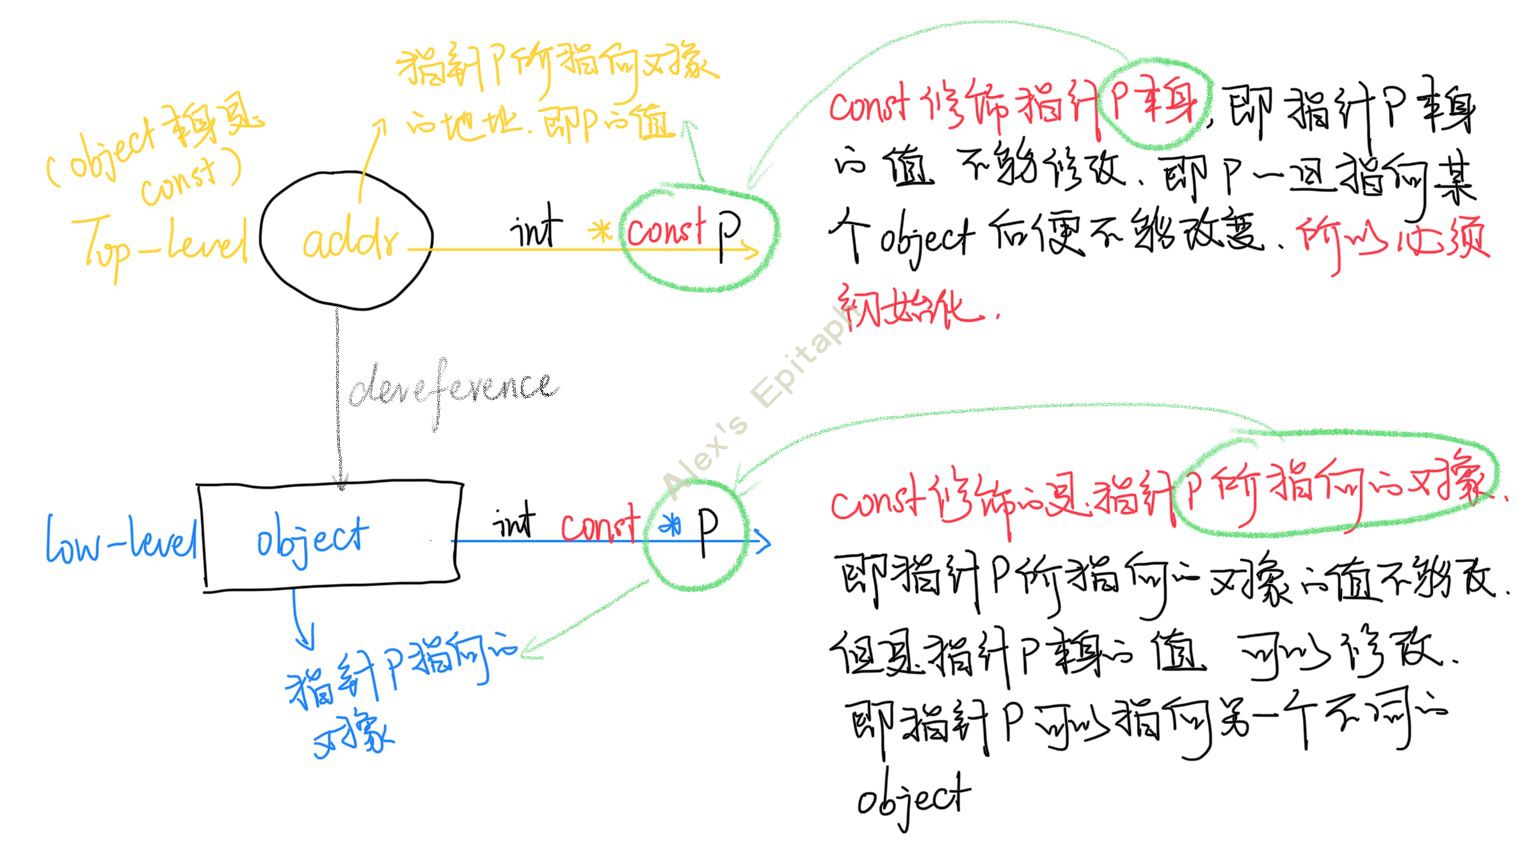 指针P所指向对象
的地址.即P的值
(object本身是
const)
Top-Level
addr
int * const P
const修饰指针P本身,即指针P本身
的值 不能修改.即P一旦指向某
个object后便不能改变.所以必须
初始化.
dereference
Alex's Epitaph
low-level
object
int const * P
指针P指向的
对象
const修饰的是指针P所指向的对象.
即指针P所指向的对象的值不能改.
但是指针P本身的值 可以修改.
即指针P可以指向另一个不同的
object